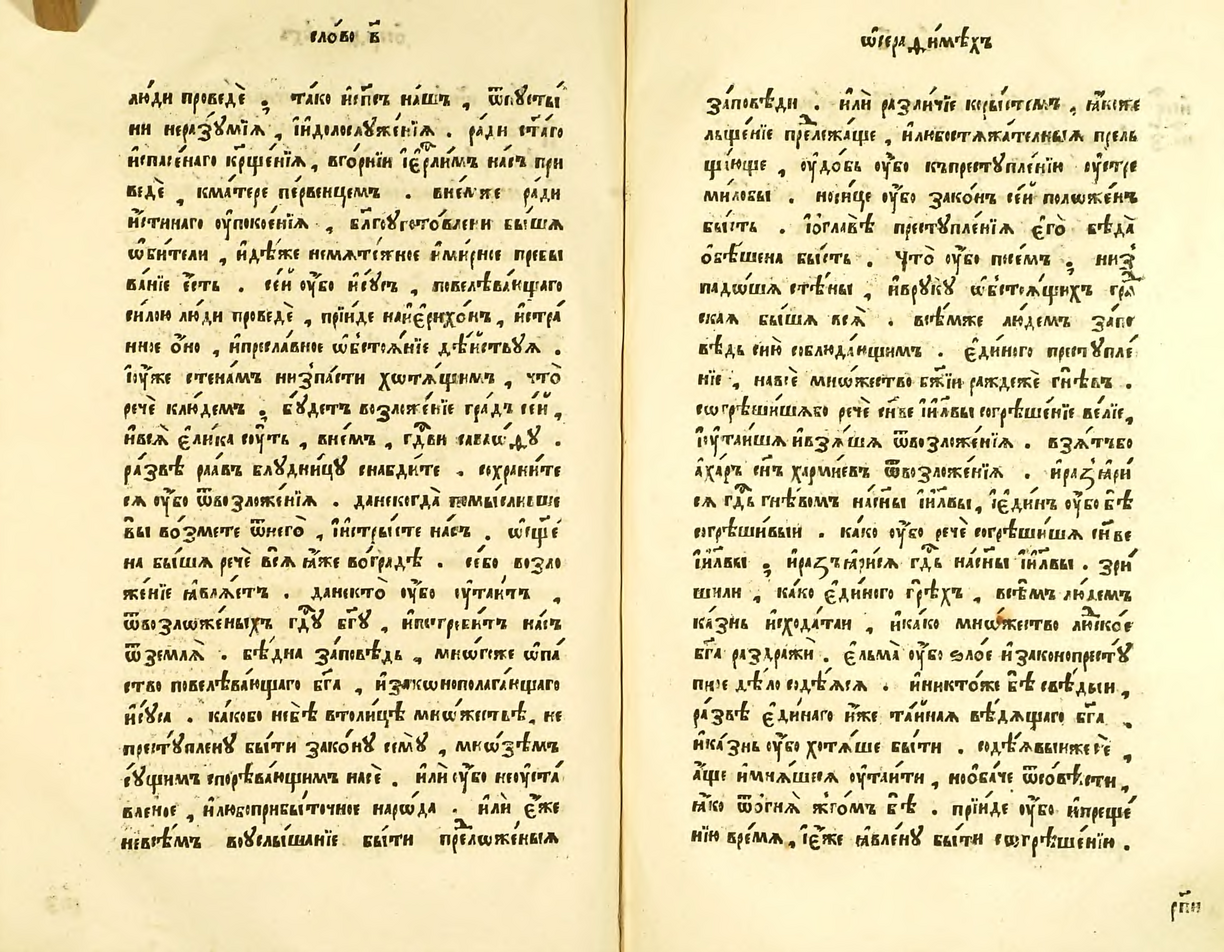 сло́во в҃
лю́ди проведѐ , та́ко и҆сп҃съ на́шъ , ѿпꙋсты́
ни неразꙋ́мїѧ , и҆і҆долослꙋже́нїѧ . ра́ди ст҃а́го
и҆спасе́наго кр҃ще́нїѧ , вго́рнїи і҆ерⷭ҇ли́мъ на́съ при
ведѐ , кма́тере пе́рвенцемъ . внем́же ра́ди
и҆́стинаго ѹ҆покое́нїѧ , бл҃гоꙋгото́влени бы́шѧ
ѡ҆би́тели , и҆дѣ́же немѧте́жное и҆ми́рное превы
ва́нїе е҆́сть . се́й ѹ҆́бо и҆сꙋ́съ , повелѣва́ющаго
си́лою лю́ди проведѐ , прїи́де наи҆ерихо́нъ , и҆стра́
нное о҆́но , и҆пресла́вное ѡ҆бстоѧ́нїе дѣ́йствꙋѧ .
і҆ѹ҆́же стена́мъ низпа́сти хотѧ́щимъ , что̀
речѐ клю́демъ ; бꙋ́детъ возложе́нїе гра́дъ се́й ,
и҆всѧ̀ е҆ли́ка сꙋ́ть , вне́мъ , гдⷭ҇ви савао́ѳꙋ .
ра́звѣ раа́въ блꙋдни́цꙋ снабди́те . сохрани́те
сѧ ѹ҆́бо ѿвозложе́нїѧ . данекогда̀ помы́сливше
вы̀ во́змете ѿнегѡ̀ , и҆истры́ете на́съ . ѡ҆сщ҃е́
на бы́шѧ речѐ всѧ̀ ꙗ҆́же вогра́дѣ . се́бо возло
же́нїе ꙗ҆влѧ́етъ . данекто̀ ѹ҆́бо ѹ҆таи́тъ ,
ѿвозложе́ныхъ гдⷭ҇ꙋ бг҃ꙋ , и҆потреби́тъ на́съ
ѿземлѧ̀ . бѣ́дна за́повѣдь , мно́гоже ѡ҆па́
ство повелѣва́ющаго бг҃а , и҆законополага́ющаго
и҆сꙋ́са . ка́кобо небѣ̀ втоли́цѣ мно́жествѣ , не
престꙋ́пленꙋ бы́ти зако́нꙋ семꙋ̀ , мно́зѣмъ
сꙋ́щимъ спорѣва́ющимъ насѐ . и҆лѝ ѹ҆́бо неѹ҆ста́
вленое , и҆любоприбы́точное наро́да . и҆лѝ е҆́же
невсѣ́мъ воуслы́шанїе бы́ти предложе́ныѧ
ѡ҆серафи́мѣхъ
за́повѣди . и҆лѝ разли́чїе коры́стемъ , ꙗ҆́коже
льще́нїе прележа́ще , и҆любостѧжа́телныѧ прель
ща́юще , ѹ҆до́бь ѹ҆́бо къпрестꙋпле́нїю ѹ҆стре
ми́лобы . но́сице ѹ҆́бо зако́нъ се́й поло́женъ
бы́сть . і҆оглавѣ̀ престꙋпле́нїѧ є҆го̀ бѣда̀
о҆бѣ́шена бы́сть . что̀ ѹ҆́бо посе́мъ ; низ̾
падо́шѧ стѣ́ны , и҆врꙋкꙋ̀ ѡ҆бстоѧ́щихъ гра́д
скаѧ бы́шѧ всѧ̀ . всѣ́мже лю́демъ за́по
вѣдь сию̀ соблюда́ющимъ . є҆ди́ного престꙋпле́
нїе , навсѐ мно́жество бж҃їи раждежѐ гнѣ́въ .
согрѣши́шѧбо речѐ сн҃ве і҆и҃лвы согрѣше́нїе ве́лїе ,
і҆ѹ҆таи́шѧ и҆взѧ́шѧ ѿвозложе́нїѧ . взѧ́тъбо
а҆ха́ръ сн҃ъ харми́евъ ѿвозложе́нїѧ . и҆разъꙗ҆ри́
сѧ гдⷭ҇ь гнѣ́вомъ насн҃ы і҆и҃лвы , і҆є҆ди́нъ ѹ҆́бо бѣ̀
согрѣши́выи . ка́ко ѹ҆́бо речѐ согрѣши́шѧ сн҃ве
і҆и҃лвы ; и҆разъꙗ҆ри́сѧ гдⷭ҇ь насн҃ы і҆и҃лвы . зри́
шили , ка́ко є҆ди́ного грѣ́хъ , всѣ́мъ лю́демъ
ка́знь и҆схода́таи , и҆ка́ко мно́жество людско́е
бг҃а раздражѝ . є҆льма̀ ѹ҆́бо ѕло́е и҆законопрестꙋ́
пное дѣ́ло содѣ́ѧсѧ . и҆никто́же бѣ̀ свѣ́дыи ,
ра́звѣ є҆ди́наго и҆́же та́йнаѧ вѣ́дѧщаго бг҃а .
и҆ка́знь ѹ҆́бо хотѧ́ше бы́ти . содѣ́ѧвыижесѐ ,
а҆́ще и҆мнѧ́шесѧ ѹ҆таи́ти , нооба́че ѿсо́вѣсти ,
ꙗ҆́ко ѿогнѧ̀ жго́мъ бѣ̀ . прїи́де ѹ҆́бо и҆преще́
нїю вре́мѧ , і҆є҆́же ꙗ҆вле́нꙋ бы́ти согрѣше́нїю .
рпи